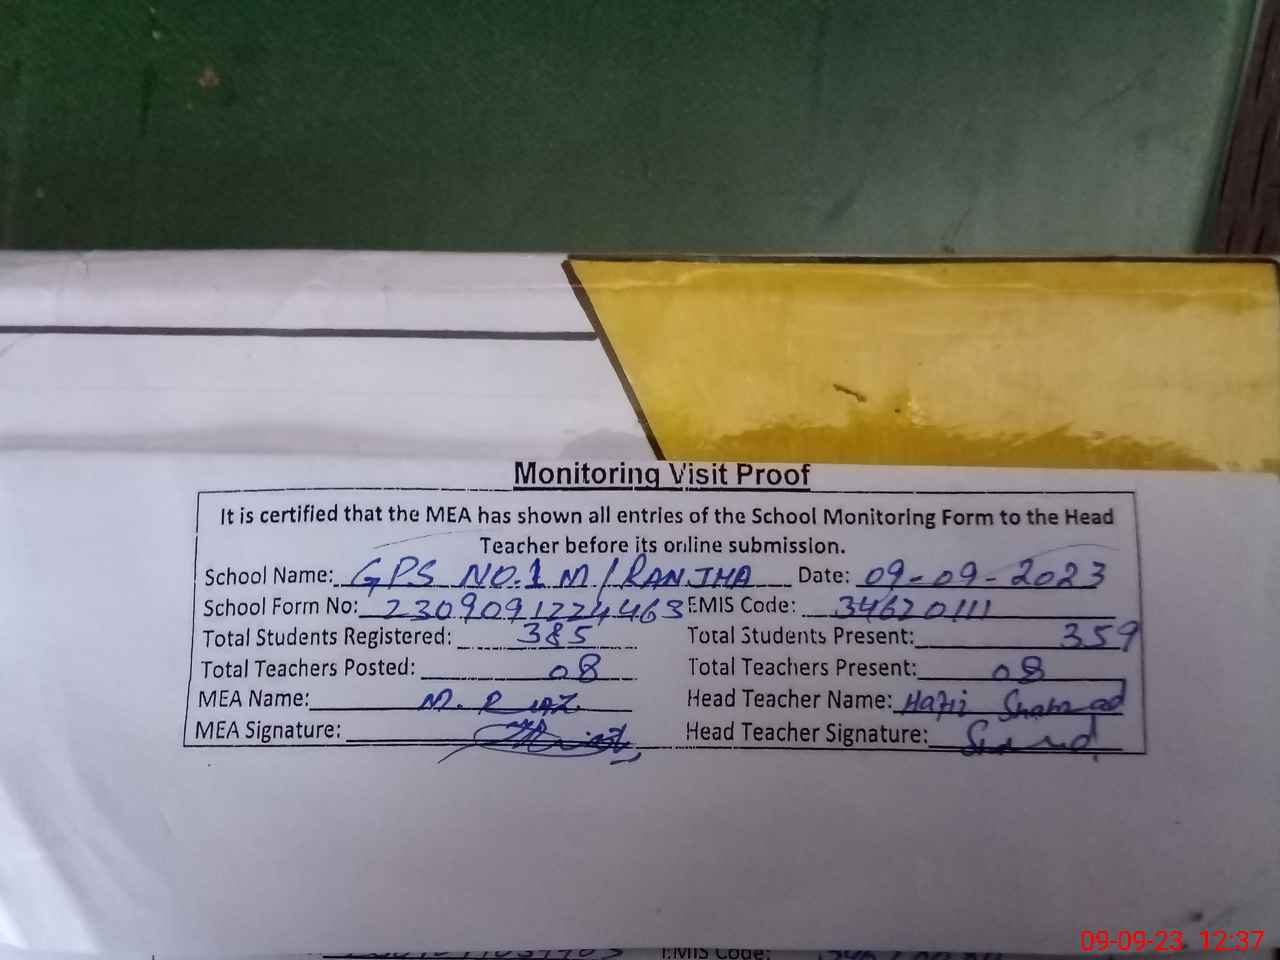 Monitoring Visit Proof
It is certified that the MEA has shown all entries of the School Monitoring Form to the Head
Teacher before its online submission.
School Name: GPS NO.1 M/RANJHA Date: 09-09-2023
School Form No: 2309091224463 EMIS Code: 34620111
Total Students Registered: 385 Total Students Present: 359
Total Teachers Posted: 08 Total Teachers Present: 08
MEA Name: M. Riaz Head Teacher Name:
MEA Signature: Head Teacher Signature:
EMIS Code:
09-09-23 12:37